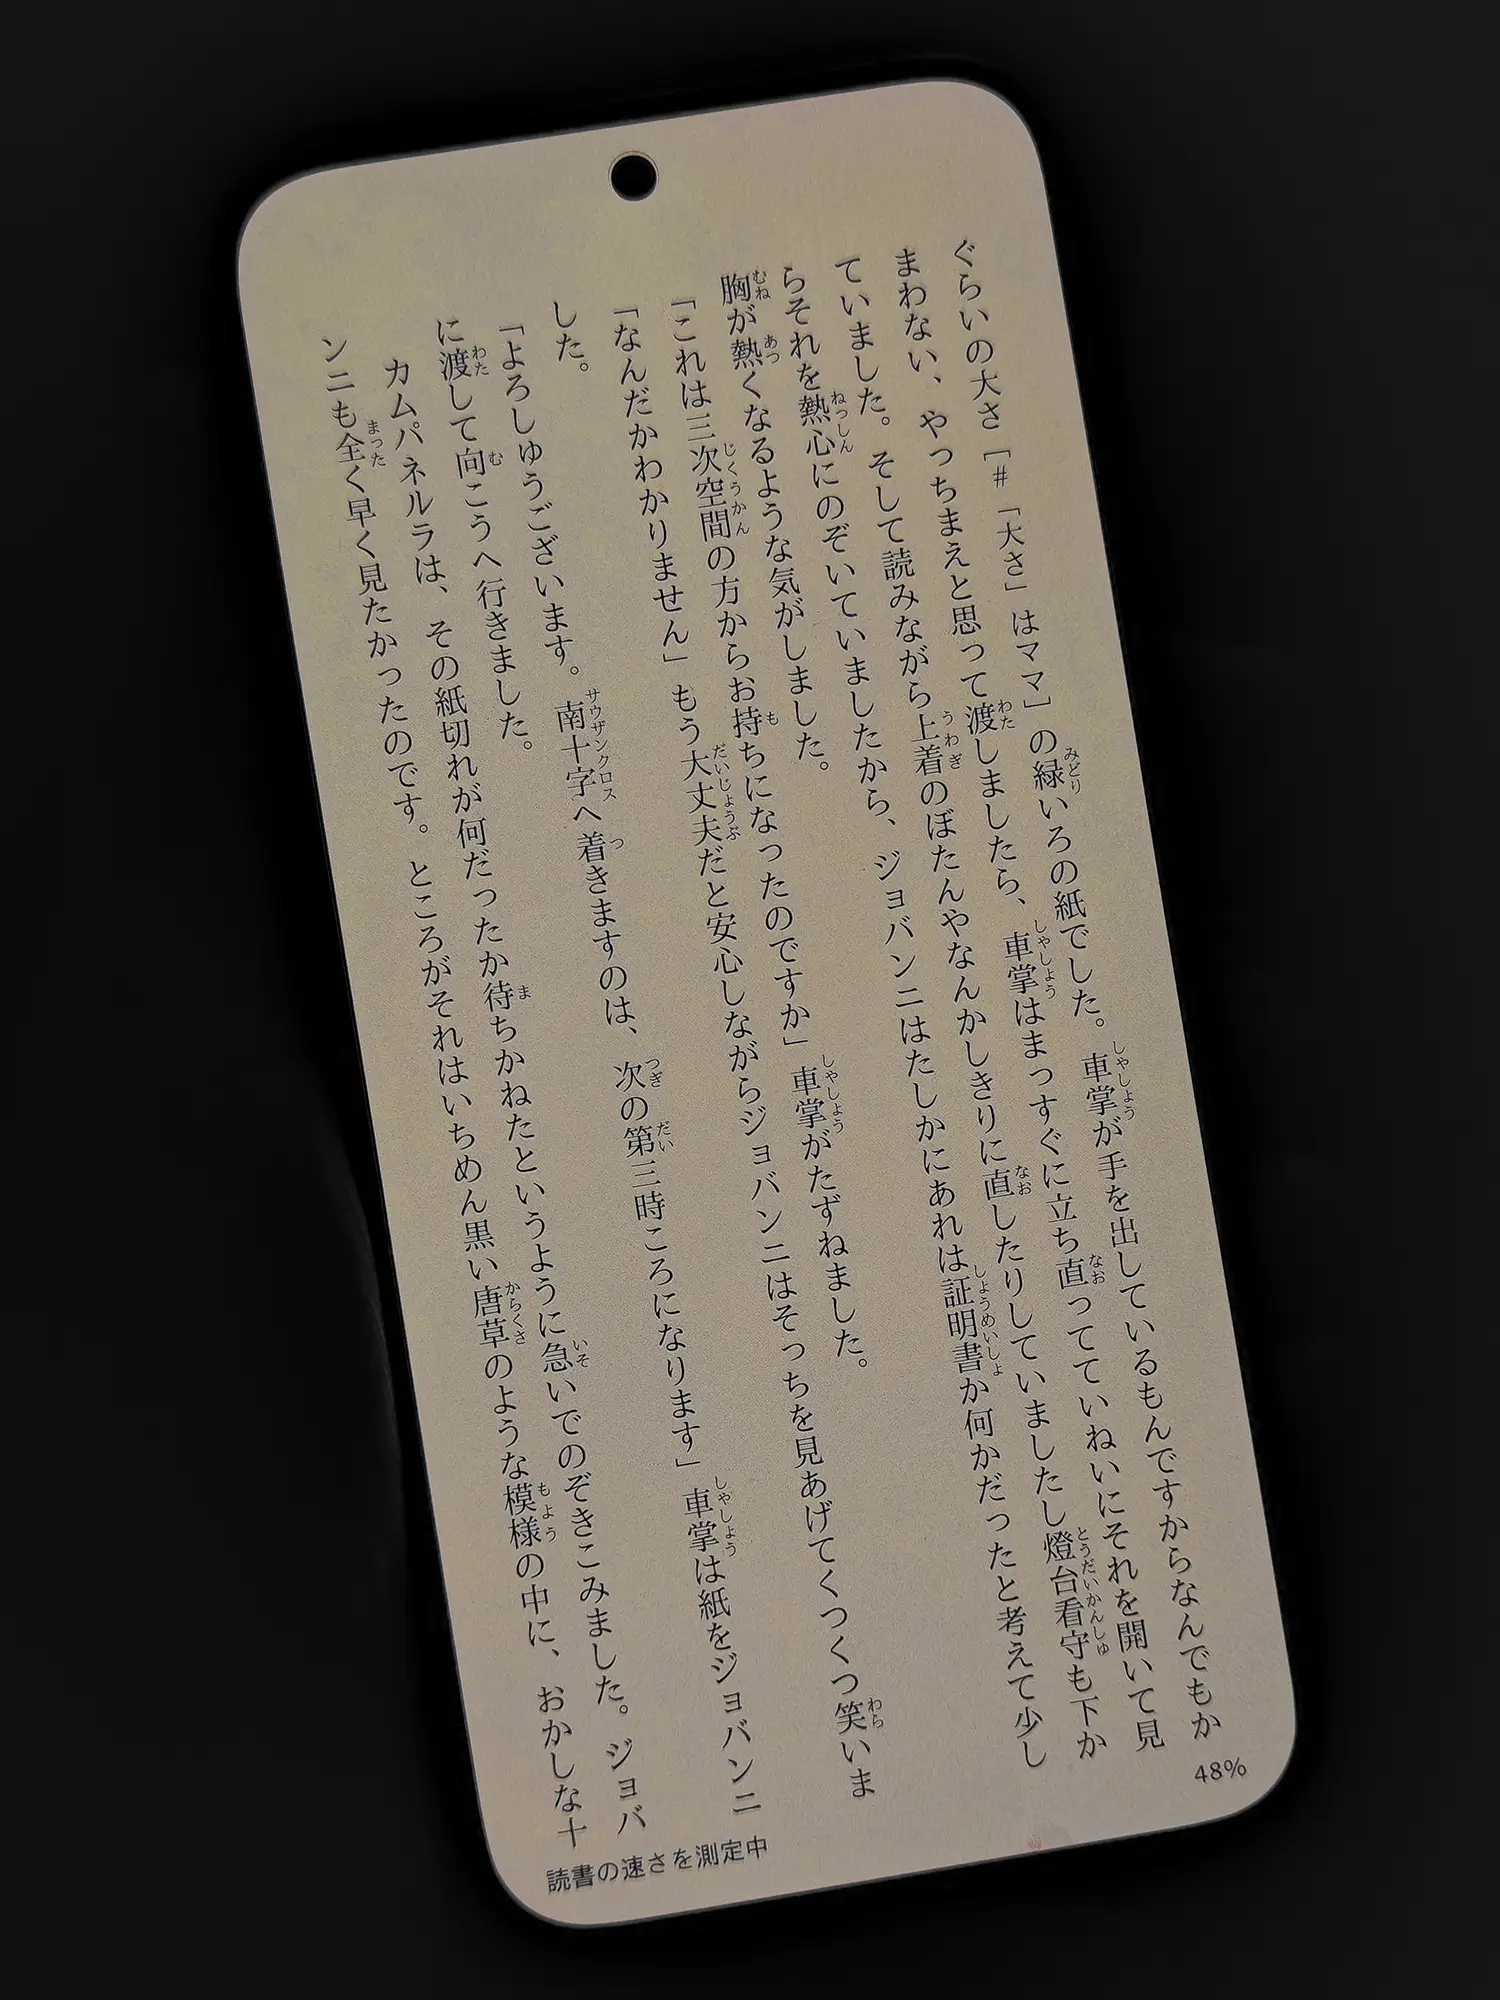 ぐらいの大さ［＃「大さ」はママ］の緑いろの紙でした。車掌が手を出しているもんですからなんでもか
まわない、やっちまえと思って渡しましたら、車掌はまっすぐに立ち直ってていねいにそれを開いて見
ていました。そして読みながら上着のぼたんやなんかしきりに直したりしていましたし燈台看守も下か
らそれを熱心にのぞいていましたから、ジョバンニはたしかにあれは証明書か何かだったと考えて少し
胸が熱くなるような気がしました。
「これは三次空間の方からお持ちになったのですか」車掌がたずねました。
「なんだかわかりません」もう大丈夫だと安心しながらジョバンニはそっちを見あげてくつくつ笑いま
した。
「よろしゅうございます。南十字へ着きますのは、次の第三時ころになります」車掌は紙をジョバンニ
に渡して向こうへ行きました。
カムパネルラは、その紙切れが何だったか待ちかねたというように急いでのぞきこみました。ジョバ
ンニも全く早く見たかったのです。ところがそれはいちめん黒い唐草のような模様の中に、おかしな十
48%
読書の速さを測定中